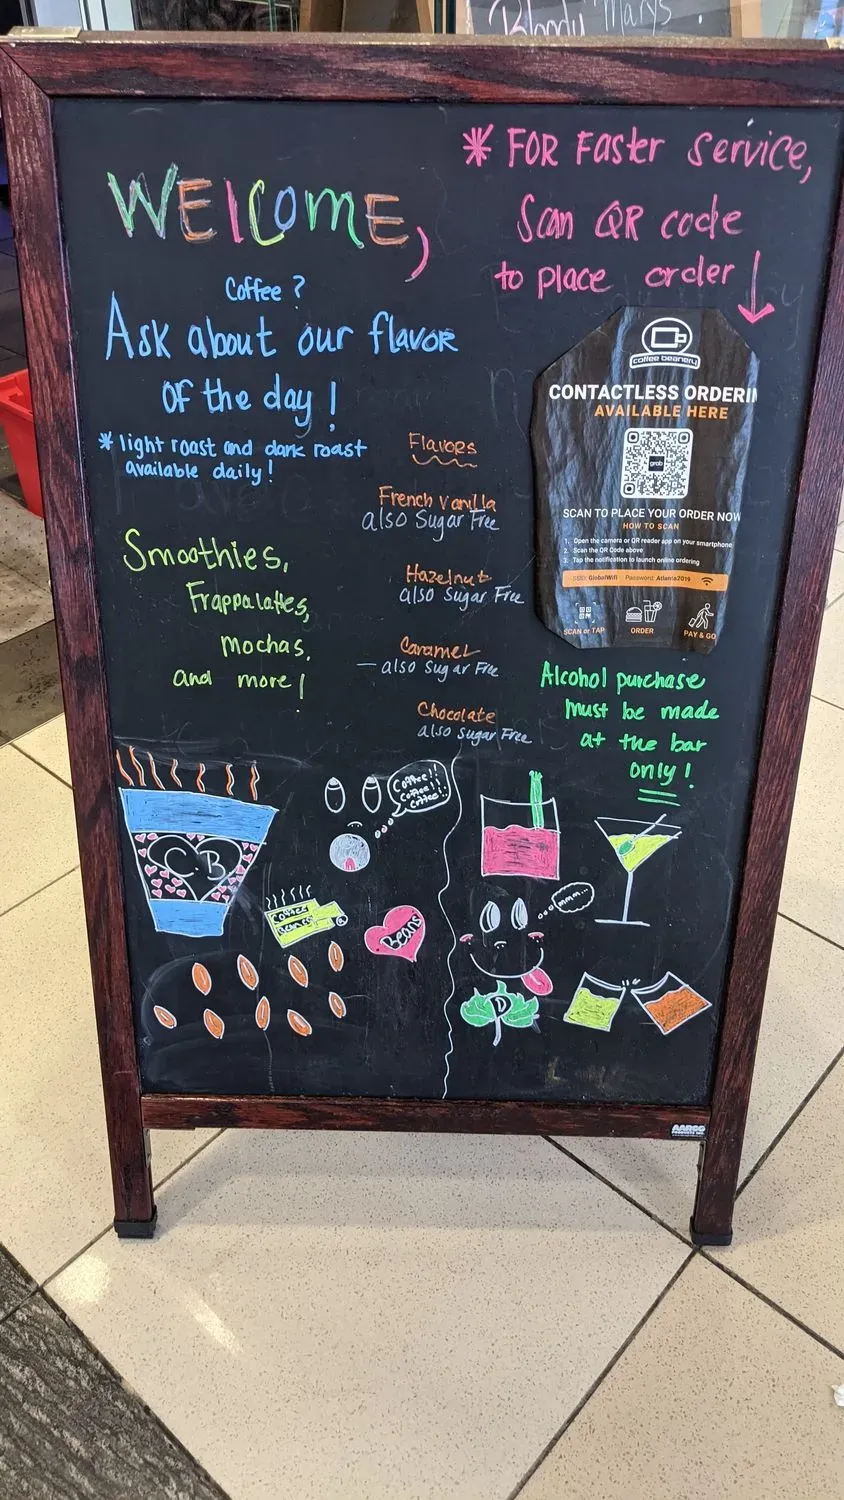 Bloody Marys
WELCOME,
Coffee ?
Ask about our flavor
of the day !
* light roast and dark roast
available daily !
Smoothies,
Frappalattes,
Mochas,
and more !
Flavors
French Vanilla
also Sugar Free
Hazelnut
also Sugar Free
Caramel
— also Sugar Free
Chocolate
also Sugar Free
* FOR Faster Service,
Scan QR code
to place order
coffee beanery
CONTACTLESS ORDERIN
AVAILABLE HERE
grab
SCAN TO PLACE YOUR ORDER NOW
HOW TO SCAN
1. Open the camera or QR reader app on your smartphone
2. Scan the QR Code above
3. Tap the notification to launch online ordering
SSID: GlobalWifi Password: Atlanta2019
SCAN or TAP ORDER PAY & GO
Alcohol purchase
must be made
at the bar
only !
C.B
Coffee!!
Coffee!!
Coffee!
Coffee
Beans
mmm...
D
AARCO
PRODUCTS INC.